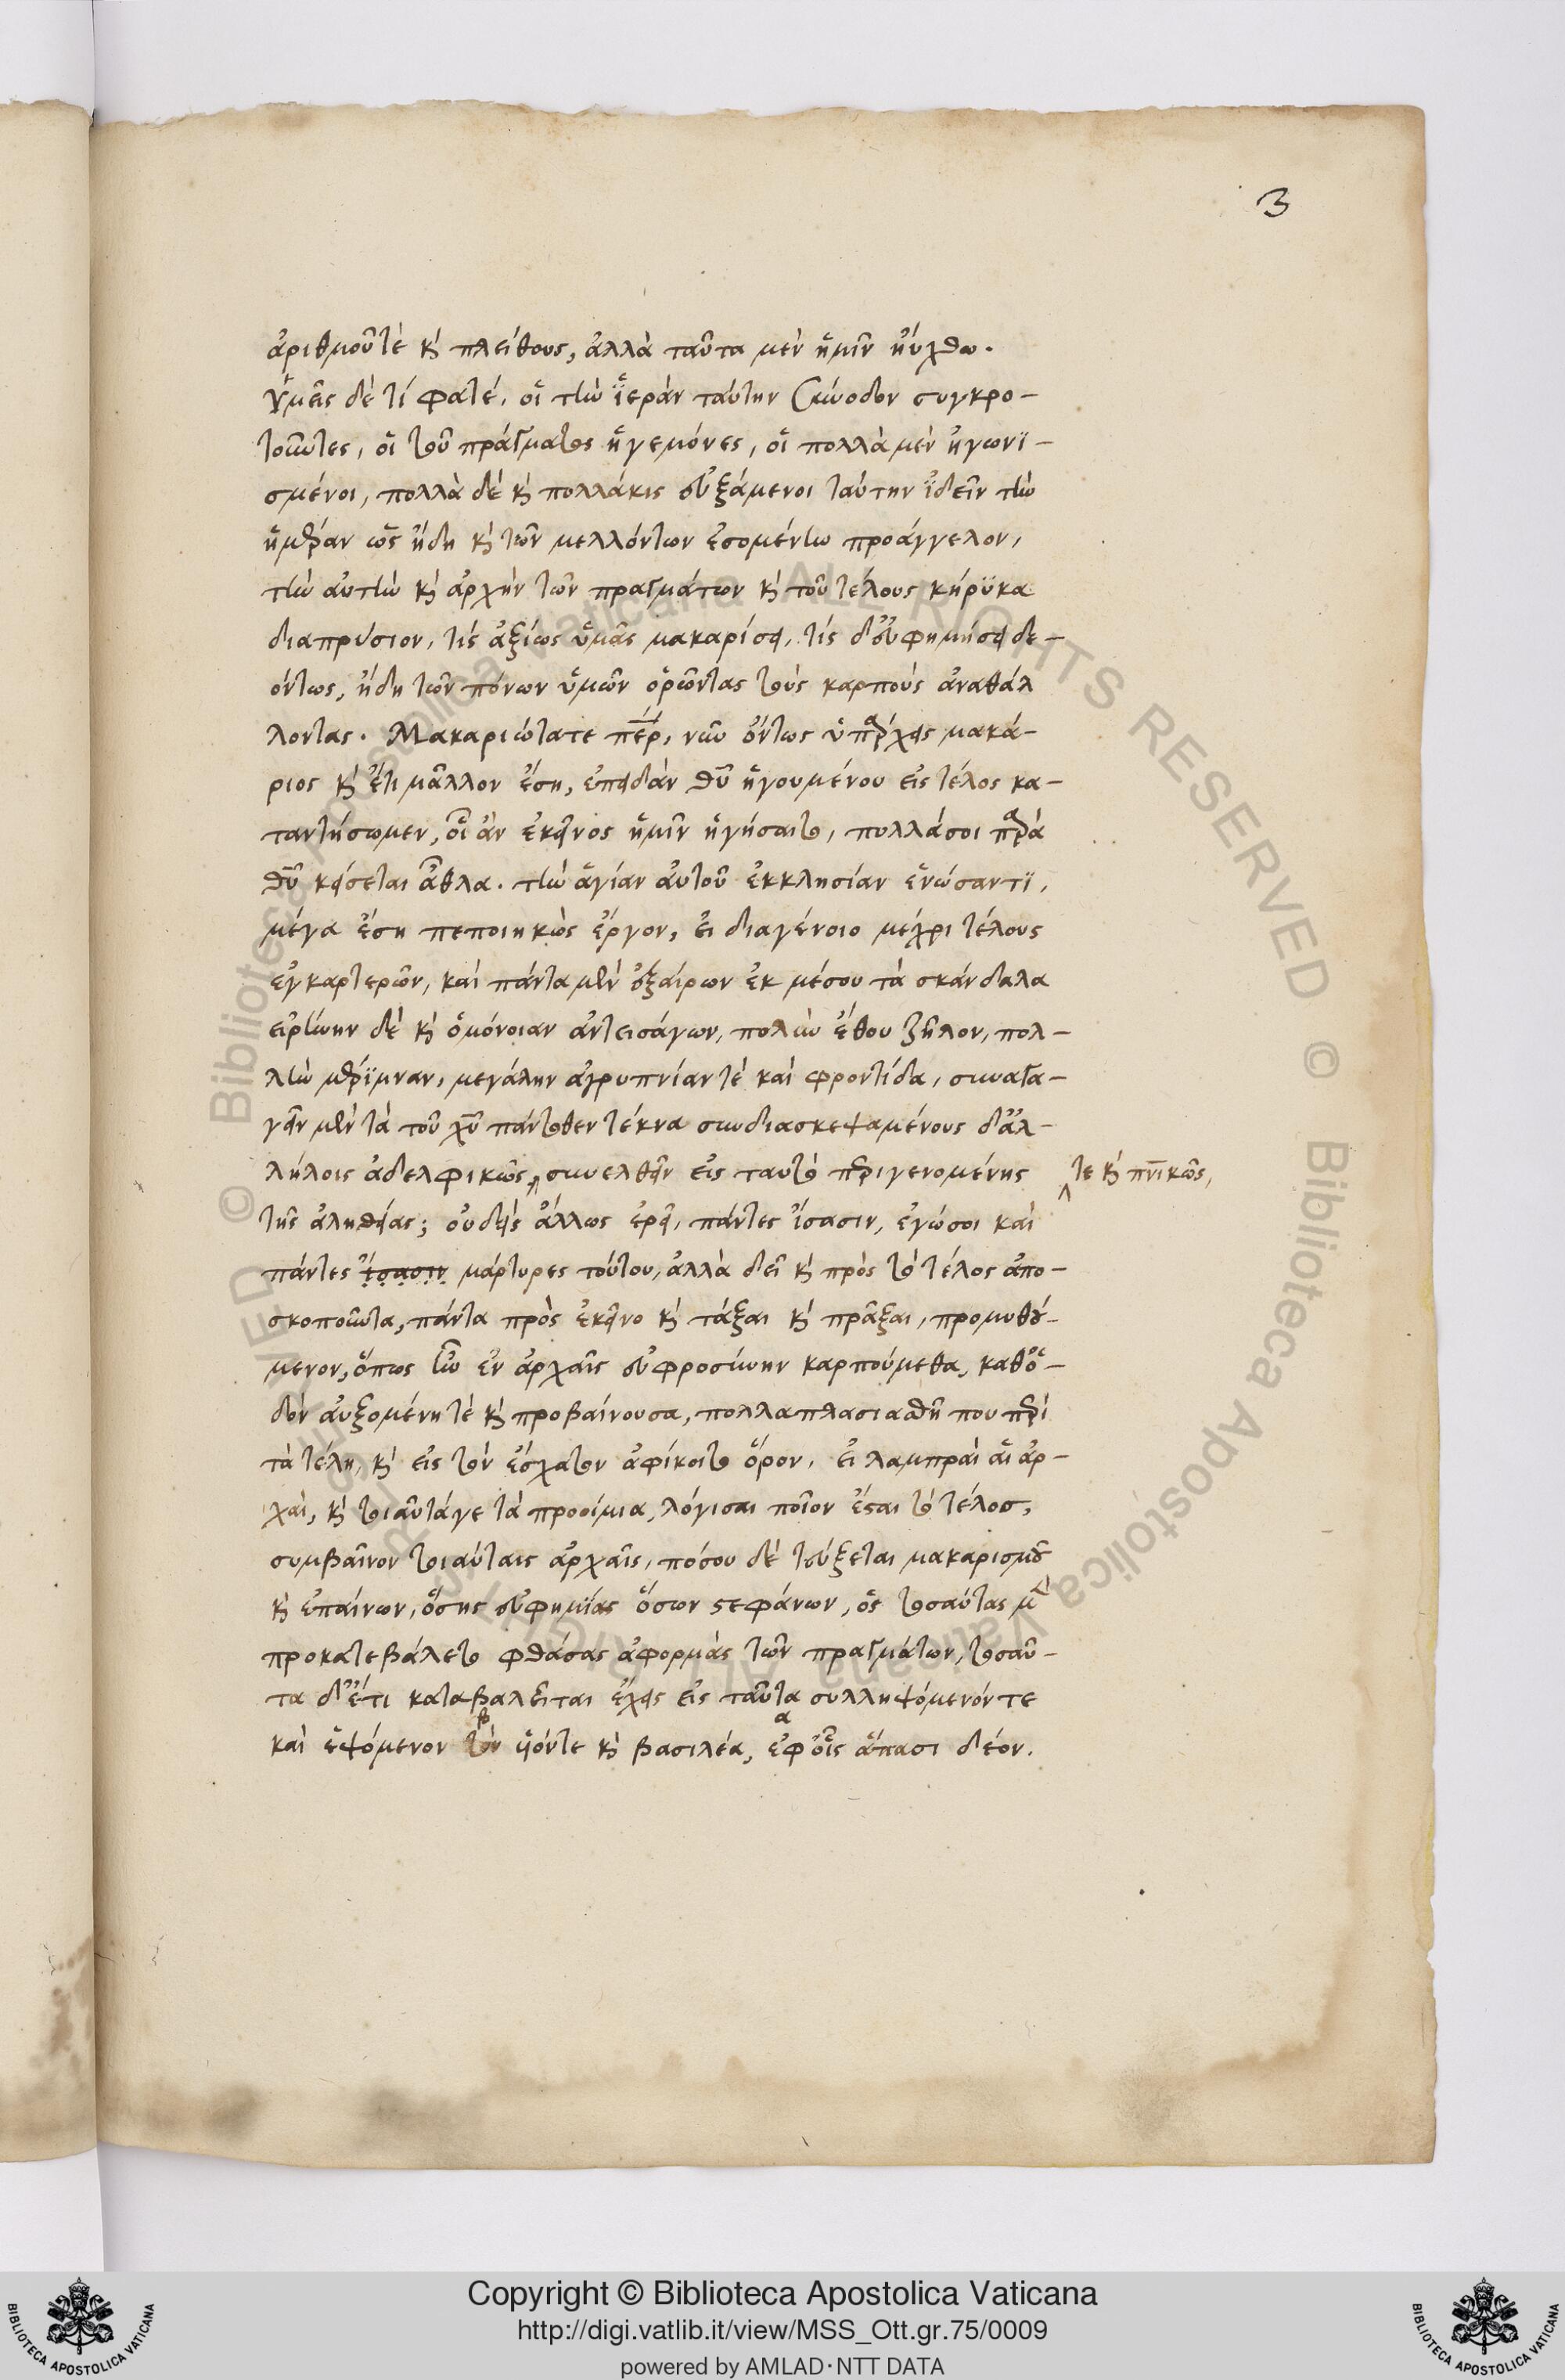 3
ἀριθμοῦ τὲ κ πλείθους, ἀλλὰ ταῦτα μὲν ἡμῖν ηὔχθω.
Ὑμεῖς δὲ τί φατέ, οἱ τὴν ἱερὰν ταύτην σύνοδον συγκρο-
τοῦντες, οἱ τοῦ πράγματος ἡγεμόνες, οἱ πολλὰ μὲν ἠγωνϊ-
σμένοι, πολλὰ δὲ κ πολλάκις εὐξάμενοι ταύτην ἰδεῖν τὴν
ἡμέραν ὡς ἤδη κ τῶν μελλόντων ἐσομένην προάγγελον,
τὴν αὐτὴν κ ἀρχὴν τῶν πραγμάτων κ τοῦ τέλους κήρϋκα
διαπρύσιον, τίς ἀξίως ὑμᾶς μακαρίσει, τίς δ' εὐφημήσει δε-
όντως, ἤδη τῶν πόνων ὑμῶν ὁρῶντας τοὺς καρποὺς ἀναθάλ
λοντας. Μακαριώτατε περ, νῦν ὄντως ὑπάρχεις μακά-
ριος κ ἔτι μᾶλλον ἔση, ἐπειδὰν θυ ἡγουμένου εἰς τέλος κα-
ταντήσωμεν, οἷ ἂν ἐκεῖνος ἡμῖν ἡγήσαιτο, πολλά σοι παρὰ
θυ κείσεται ἆθλα. τὴν ἁγίαν αὐτοῦ ἐκκλησίαν ἑνώσαντϊ,
μέγα ἔση πεποιηκὼς ἔργον, εἰ διαγένοιο μέχρι τέλους
ἐγκαρτερῶν, καὶ πάντα μὲν ἐξαίρων ἐκ μέσου τὰ σκάνδαλα
εἰρήνην δὲ κ ὁμόνοιαν ἀντεισάγων, πολὺν ἔθου ζῆλον, πολ-
λὴν μέριμναν, μεγάλην ἀγρυπνίαν τὲ καὶ φροντίδα, συναγα-
γεῖν μὲν τὰ τοῦ χυ πάντοθεν τέκνα συνδιασκεψαμένους δ' ἀλ-
λήλοις ἀδελφικῶς, συνελθεῖν εἰς ταυτὸ περιγενομένης
τε κ πνικῶς,
τῆς ἀληθείας; οὐδεὶς ἄλλως ἐρεῖ, πάντες ἴσασιν, ἐγώ σοι καὶ
πάντες ἴσασιν μάρτυρες τούτου, ἀλλὰ δεῖ κ πρὸς τὸ τέλος ἀπο-
σκοποῦντα, πάντα πρὸς ἐκεῖνο κ τάξαι κ πρᾶξαι, προμυθού-
μενον, ὅπως ἣν ἐν ἀρχαῖς εὐφροσύνην καρπούμεθα, καθ' ὁ-
δὸν αὐξομένη τὲ κ προβαίνουσα, πολλαπλασιασθῆ που περὶ
τὰ τέλη, κ εἰς τὸν ἔσχατον ἀφίκοιτο ὅρον. εἰ λαμπραὶ αἱ ἀρ-
χαὶ, κ τοιαῦτά γε τὰ προοίμια, λόγισαι ποῖον ἔσται τὸ τέλοσ,
συμβαῖνον τοιαύταις ἀρχαῖς, πόσου δὲ τεύξεται μακαρισμοῦ
κ ἐπαίνων, ὅσης εὐφημίας ὅσων στεφάνων, ὃς τοσαύτας μὲν
προκατεβάλετο φθάσας ἀφορμὰς τῶν πραγμάτων, τοσαῦ-
τα δ' ἔτι καταβαλεῖται ἔχεις εἰς ταῦτα συλληψόμενόν τε
καὶ ἑψόμενον τὸν υἱόν τε κ βασιλέα, ἐφ' οἷς ἅπασι δέον.
Copyright © Biblioteca Apostolica Vaticana
http://digi.vatlib.it/view/MSS_Ott.gr.75/0009
powered by AMLAD·NTT DATA